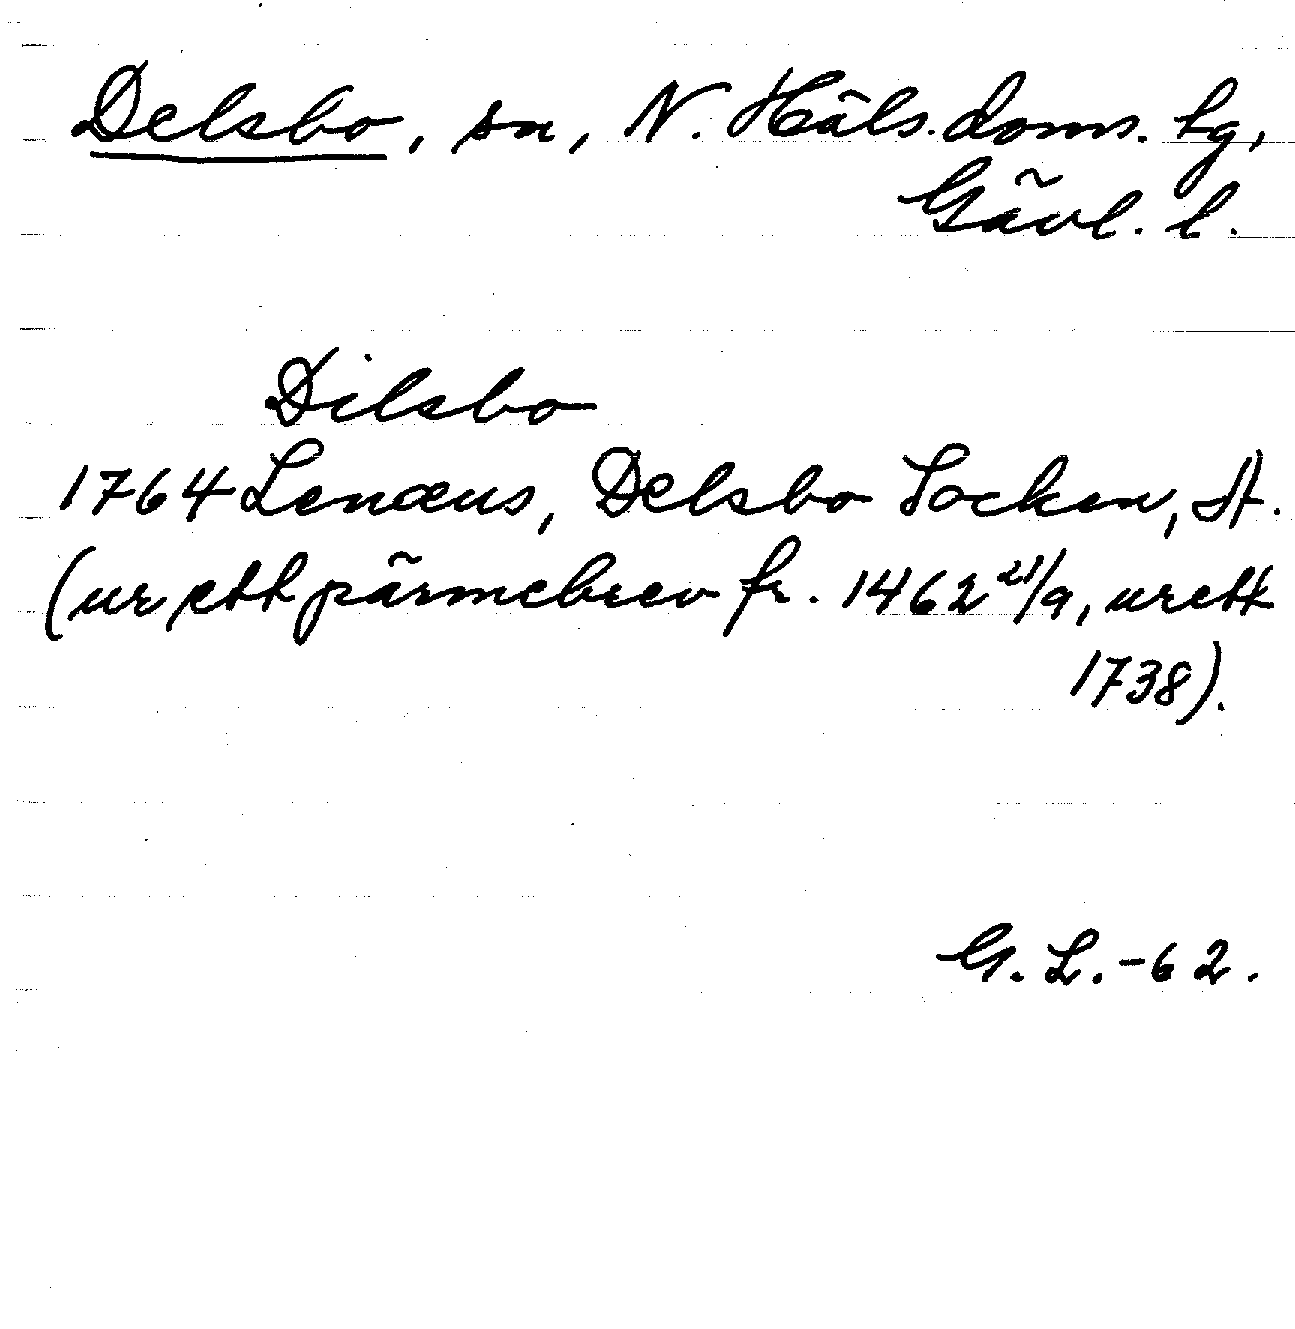 Delsbo, sn, N. Häls. doms. hg,
Gävl. l.
Dilsbo
1764 Lenæus, Delsbo Socken, st.
(ur ett pärmebrev fr. 1462 21/9, ur ett
1738).
G. L. -62.